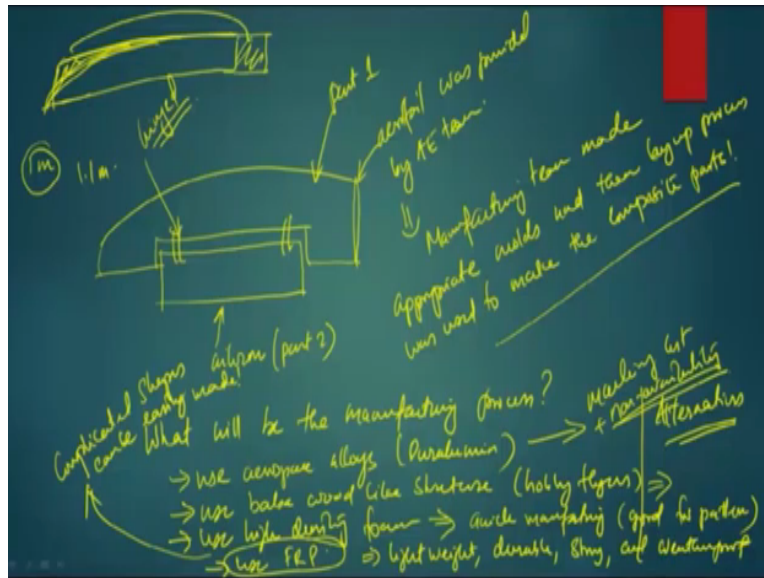 hinged
1m 1.1m.
part 1
aerofoil was provided
by AE team.
⇓ Manufacturing team made
appropriate molds and then layup process
was used to make the composite parts!
aileron (part 2)
Complicated Shapes
can be easily made!
What will be the manufacturing process?
→ use aerospace alloys (Duralumin) → Machining cost
+ non-availability
Alternatives
→ use balsa wood like structure (hobby flyers) ⇒
→ use high density foam ⇒ quick manufacturing (good for pattern)
→ use FRP. ⇒ light weight, durable, strong, and weatherproof